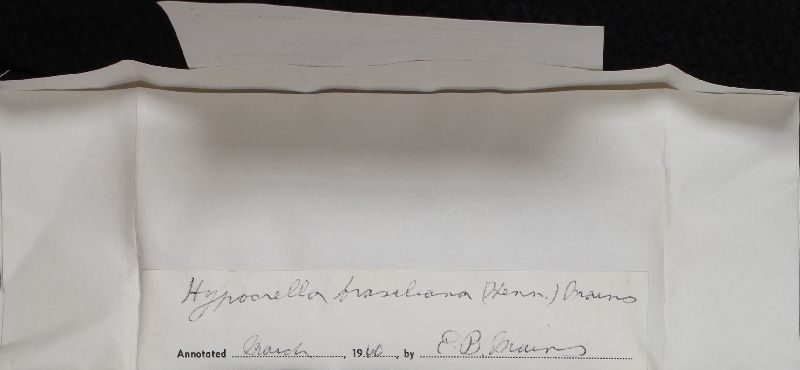 Hypocrella brasiliana (Henn.) Mains
Annotated March, 1960, by E. B. Mains